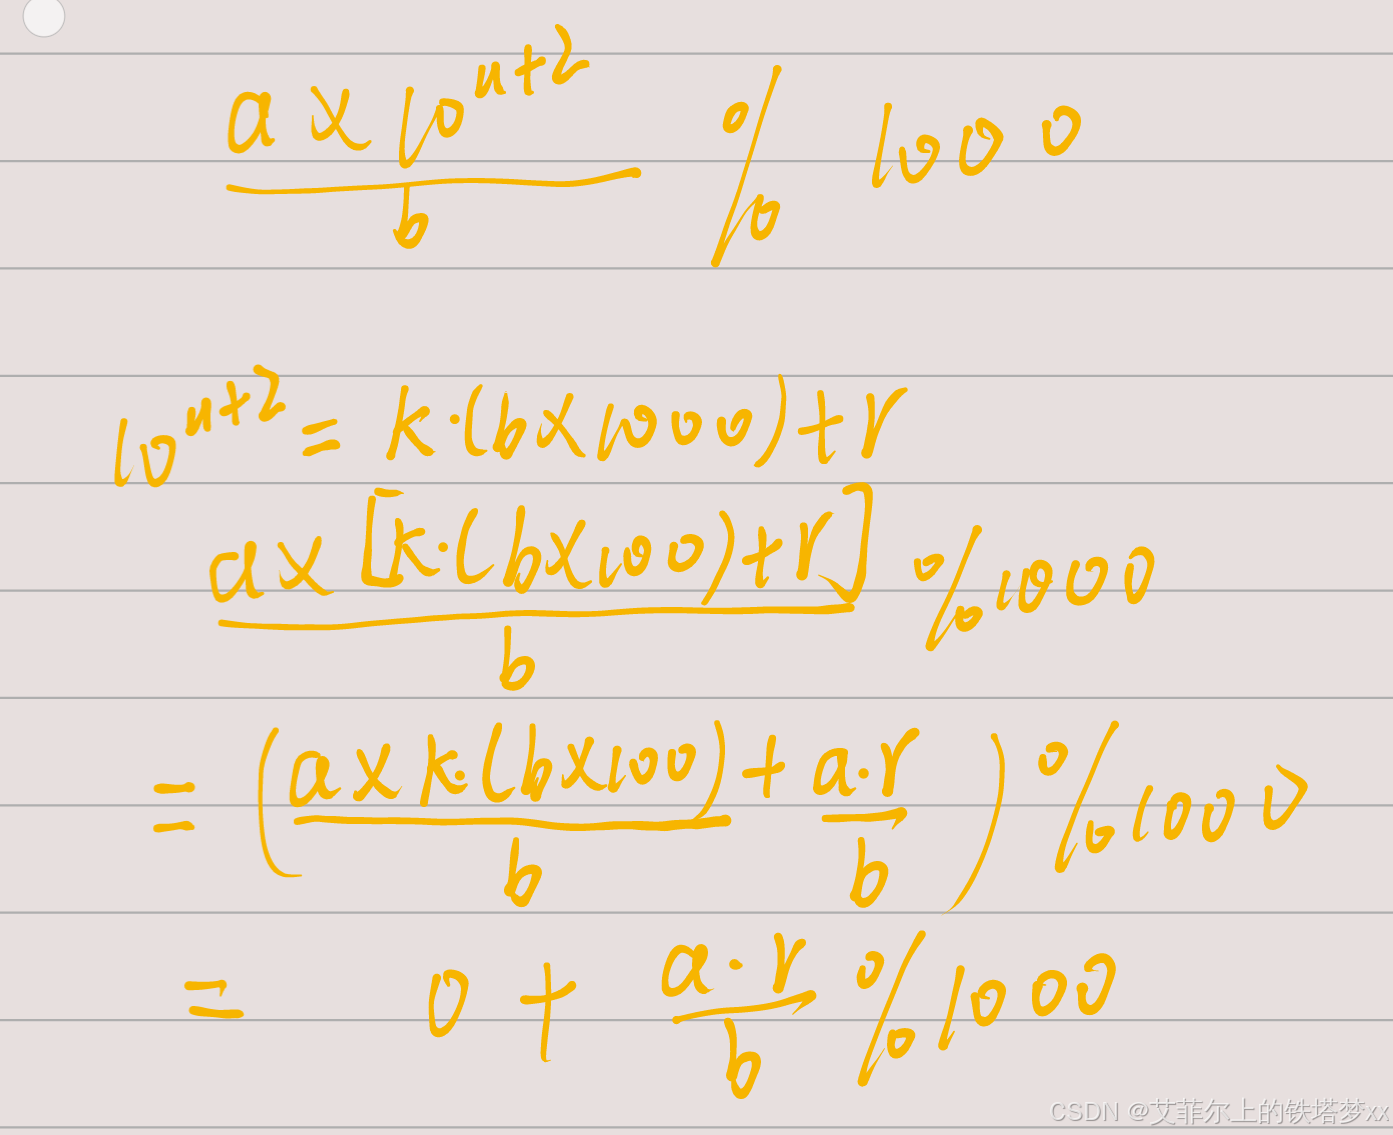 a × 10^{n+2} / b % 1000
10^{n+2} = k·(b×1000)+r
a × [k·(b×100)+r] / b % 1000
= (a×k·(b×100) / b + a·r / b) % 1000
= 0 + a·r / b % 1000
CSDN @艾菲尔上的铁塔梦xx